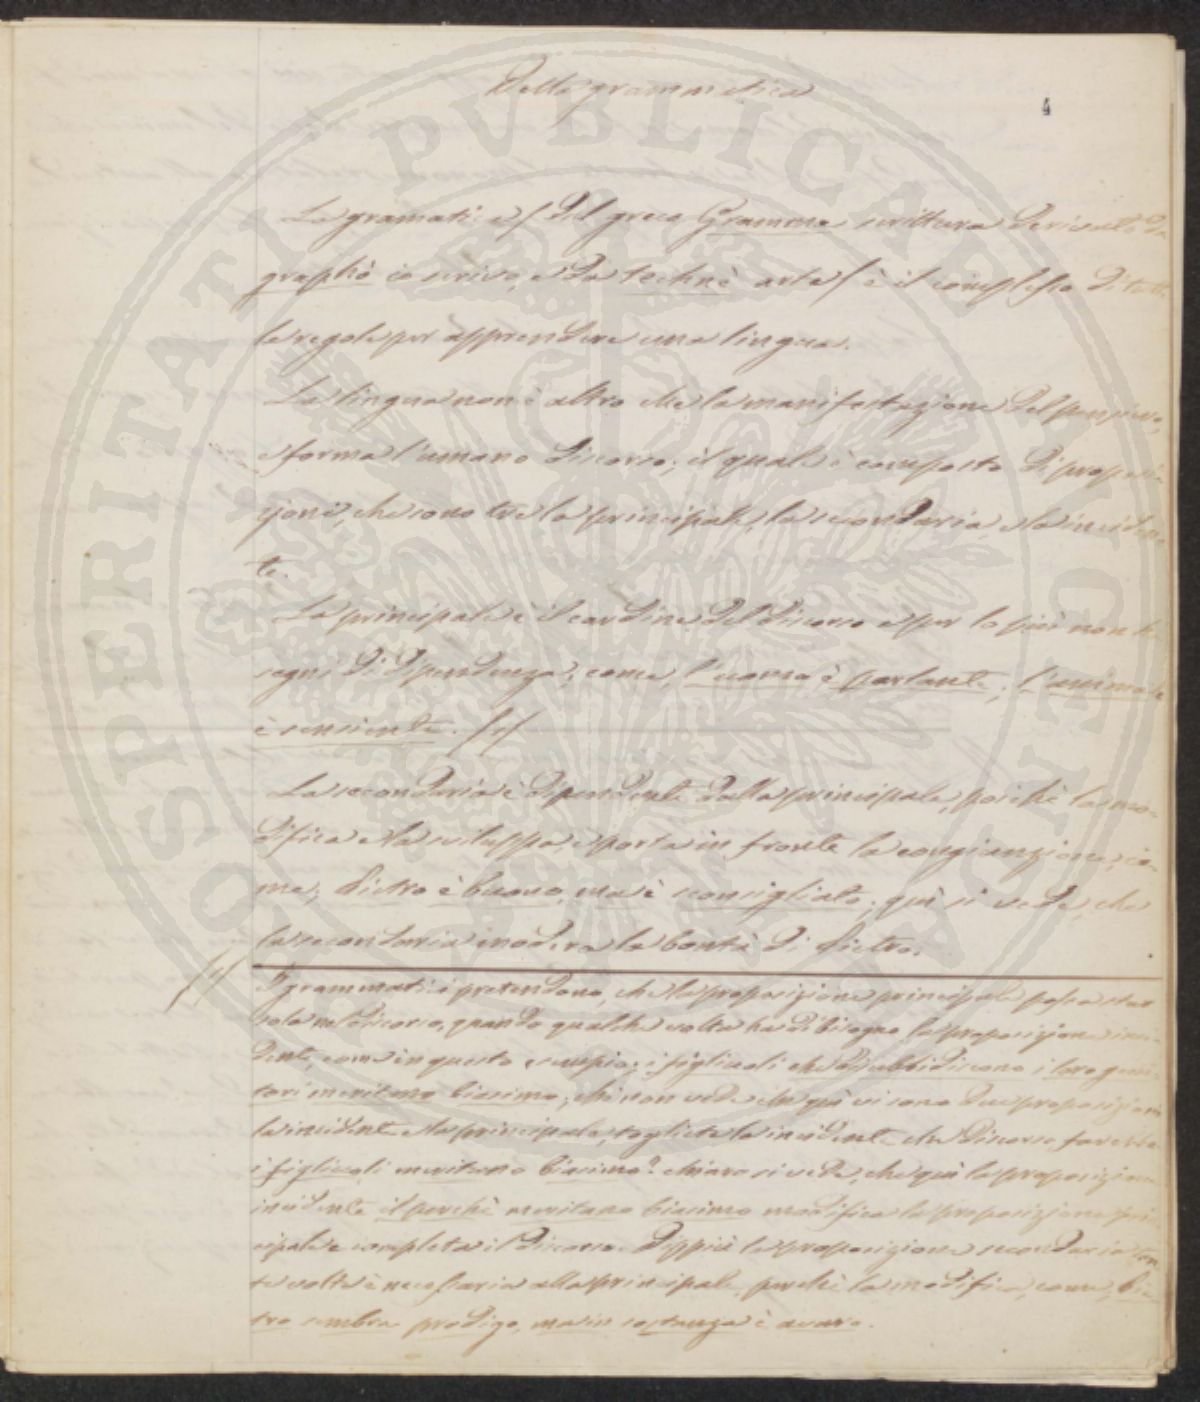 Della grammatica
4
La gramatica /Dal greco Gramma scrittura derivato da
graphò io scrivo, e da technè arte/ è il complesso di tutte
le regole per apprendere una lingua.
La lingua non è altro che la manifestazione del pensiero,
e forma l'umano discorso; il quale è composto di proposi-
zioni, che sono tre la principale, la secondaria, e la inciden-
te.
La principale è il cardine del discorso e per lo più non ha
segni di dipendenza; come, l'uomo è parlante; l'animale
è senziente. /1/
La secondaria è dipendente dalla principale, poichè la mo-
difica e la sviluppa e porta in fronte la congiunzione, co-
me; Pietro è buono, ma è sconsigliato; quì si vede, che
la secondaria modera la bontà di Pietro.
/1/ I grammatici pretendono, che la proposizione principale possa star
sola nel discorso, quando qualche volta ha di bisogno la proposizione inci-
dente, come in questo esempio; i figliuoli che disubbidiscono i loro geni-
tori meritano biasimo; chi non vede che quì vi sono due proposizioni
la incidente e la principale, togliete la incidente che discorso farebbe
i figliuoli meritano biasimo? chiaro si vede, che quì la proposizione
incidente il perchè meritano biasimo modifica la proposizione prin-
cipale e completa il discorso. Dippiù la proposizione secondaria tan-
te volte è necessaria alla principale, perchè la modifica, come, Pie-
tro sembra prodigo, ma in sostanza è avaro.
PROSPERITATI PUBLICAE AUGENDAE